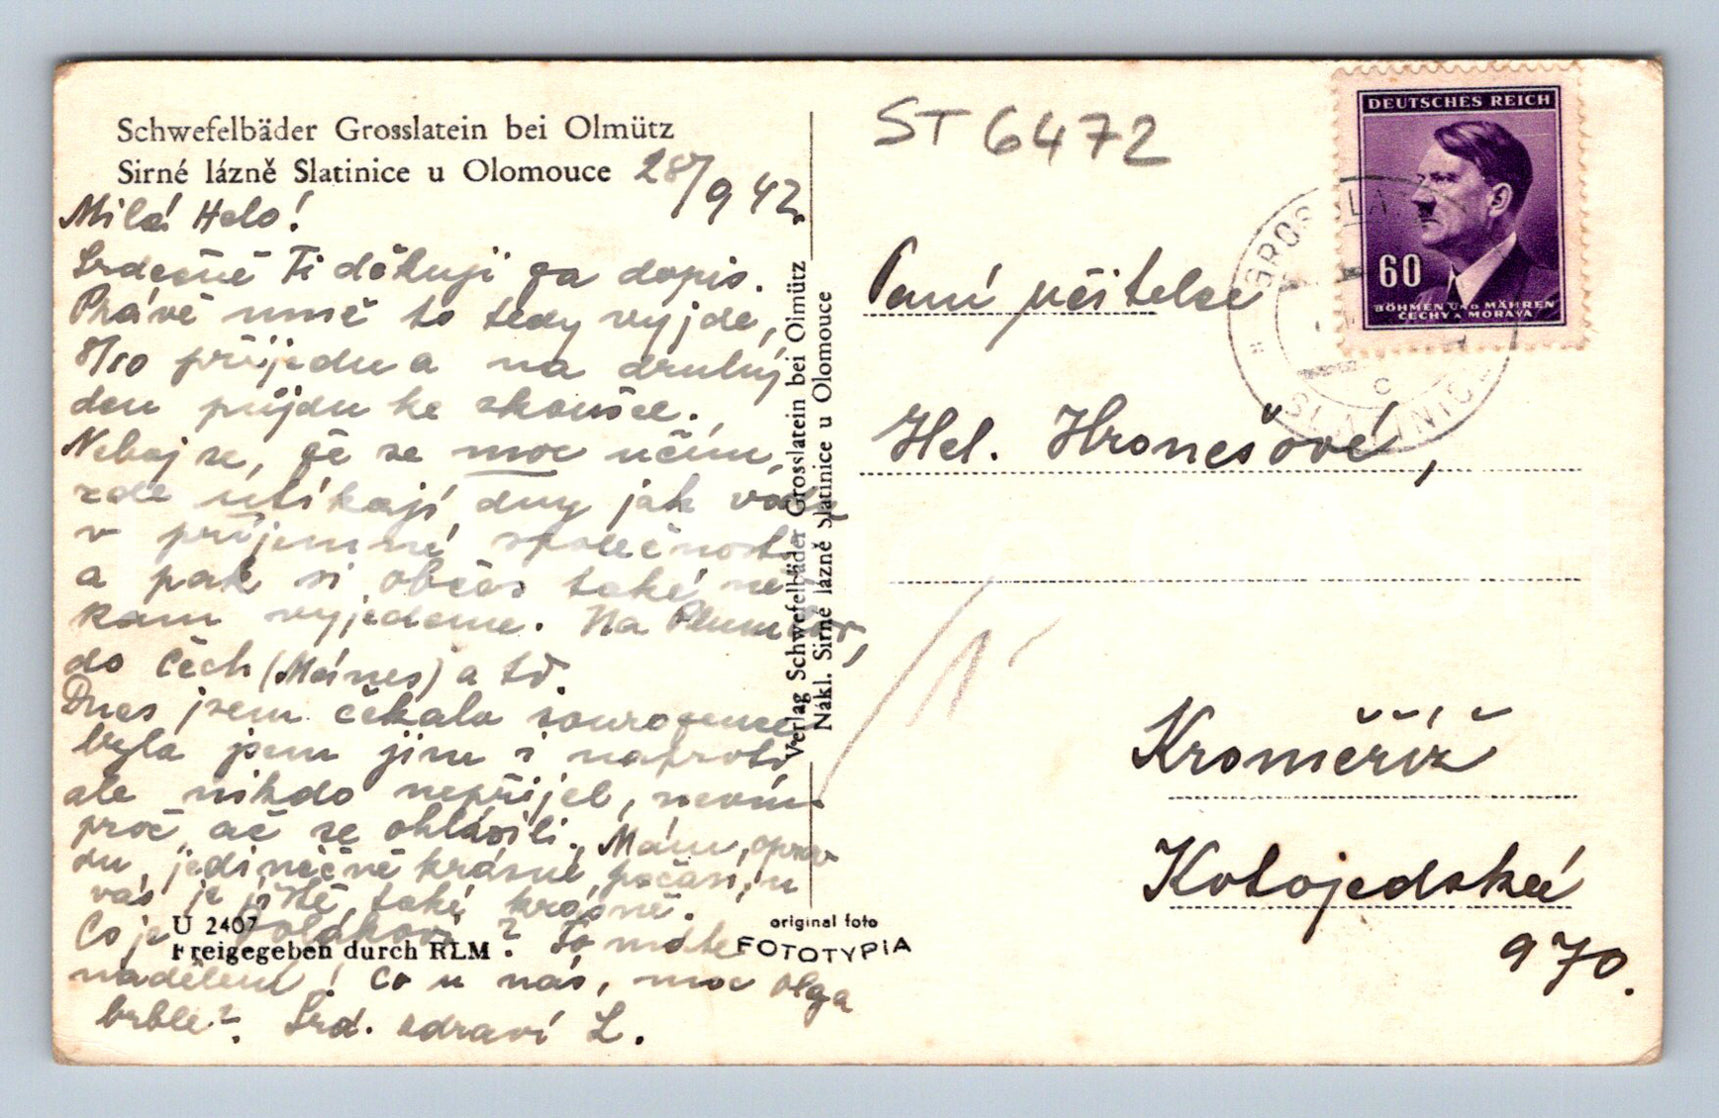 Schwefelbäder Grosslatein bei Olmütz
Sirné lázně Slatinice u Olomouce
28/9 42.
Milá Helo!
Srdečně Ti děkuji za dopis.
Právě mně to tedy vyjde,
8/10 přijedu a na druhý
den půjdu ke zkoušce.
Neboj se, že se moc učím,
zde utíkají dny jak voda
v příjemné společnosti
a pak si občas také ně-
kam vyjedeme. Na Plumlov,
do Čech (Mánes) a td.
Dnes jsem čekala sourozence
byla jsem jim i naproti
ale nikdo nepřijel, nevím
proč, ač se ohlásili. Mám, oprav-
du, jedinečně krásné počasí, u
vás je jistě také krásně.
Co je ? To máte
nadělení! Co u nás, moc Olga
brble? Srd. zdraví L.
U 2407
Freigegeben durch RLM
original foto
FOTOTYPIA
Verlag Schwefelbäder Grosslatein bei Olmütz
Nákl. Sirné lázně Slatinice u Olomouce
ST 6472
DEUTSCHES REICH
60
BÖHMEN UND MÄHREN
ČECHY A MORAVA
GROSS LA
SLATINICE
c
Paní učitelce
Hel. Hronešové,
Kroměříž
Kotojedská
970.